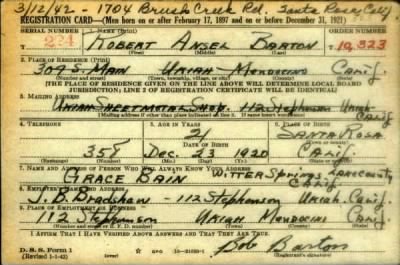 3/12/42 - 1704 Brush Creek Rd. Santa Rosa, Calif
REGISTRATION CARD—(Men born on or after February 17, 1897 and on or before December 31, 1921)
SERIAL NUMBER 1. NAME (Print) ORDER NUMBER
T 224 ROBERT ANSEL BARTON 10,323
(First) (Middle) (Last)
2. PLACE OF RESIDENCE (Print)
309 S. MAIN UKIAH MENDOCINO CALIF.
(Number and street) (Town, township, village, or city) (County) (State)
[THE PLACE OF RESIDENCE GIVEN ON THE LINE ABOVE WILL DETERMINE LOCAL BOARD
JURISDICTION; LINE 2 OF REGISTRATION CERTIFICATE WILL BE IDENTICAL]
3. MAILING ADDRESS
UKIAH SHEET METAL SHOP. 112 Stephenson Ukiah Calif
[Mailing address if other than place indicated on line 2. If same insert word same]
4. TELEPHONE 5. AGE IN YEARS 6. PLACE OF BIRTH
21 SANTA ROSA
DATE OF BIRTH
358 Dec. 23 1920 CALIF.
(Exchange) (Number) (Mo.) (Day) (Yr.) (State or country)
7. NAME AND ADDRESS OF PERSON WHO WILL ALWAYS KNOW YOUR ADDRESS
GRACE BAIN WITTER Springs, LAKE COUNTY CALIF.
8. EMPLOYER'S NAME AND ADDRESS
J. B. Bradshaw - 112 Stephenson Ukiah. Calif.
9. PLACE OF EMPLOYMENT OR BUSINESS
112 Stephenson UKIAH MENDOCINO Calif
(Number and street or R. F. D. number) (Town) (County) (State)
I AFFIRM THAT I HAVE VERIFIED ABOVE ANSWERS AND THAT THEY ARE TRUE.
D. S. S. Form 1
(Revised 1-1-42) GPO 16-21630-1 Bob Barton